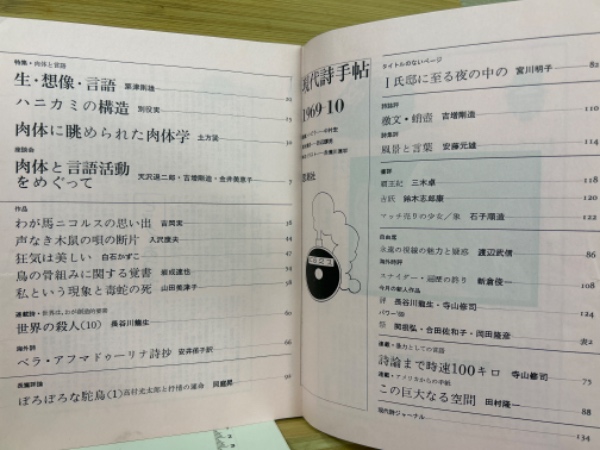 特集・肉体と言語
生・想像・言語 粟津則雄
ハニカミの構造 別役実
肉体に眺められた肉体学 土方巽
座談会
肉体と言語活動
をめぐって 天沢退二郎・吉増剛造・金井美恵子
作品
わが馬ニコルスの思い出 吉岡実 36
声なき木鼠の唄の断片 入沢康夫 38
狂気は美しい 白石かずこ 47
鳥の骨組みに関する覚書 岩成達也 54
私という現象と毒蛇の死 山田
連載詩・世界は、わが
世界の殺人(10) 長谷川龍生
海外詩
ベラ・アフマドゥーリナ詩抄 安井侑子訳 66
長篇評論
ぼろぼろな駝鳥(1) 高村光太郎と抒情の運命
現代詩手帖
1969・10
思潮社
タイトルのないページ
I氏邸に至る夜の中の 宮川明子 82
詩誌評
檄文・蛸壺 吉増剛造 110
詩集評
風景と言葉 安藤元雄 114
書評
覇王紀 三木卓 118
古妖 鈴木志郎康 120
マッチ売りの少女/象 石子順造 122
自由席
永遠の視線の魅力と疑惑 渡辺武信 86
海外時評
スナイダー・遍歴の終り 新倉俊一 108
今月の新人作品
評 長谷川龍生・寺山修司 124
パワー'69
祭 関根弘・合田佐和子・岡田隆彦 表2
連載・暴力としての言語
詩論まで時速100キロ 寺山修司 75
連載・アメリカからの手紙
この巨大なる空間 田村隆一 88
現代詩ジャーナル 134